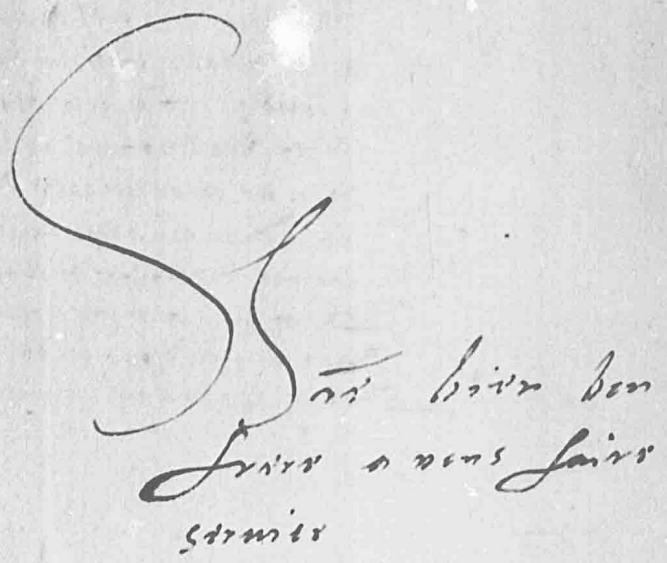 bien bon
frere a vous faire
servise